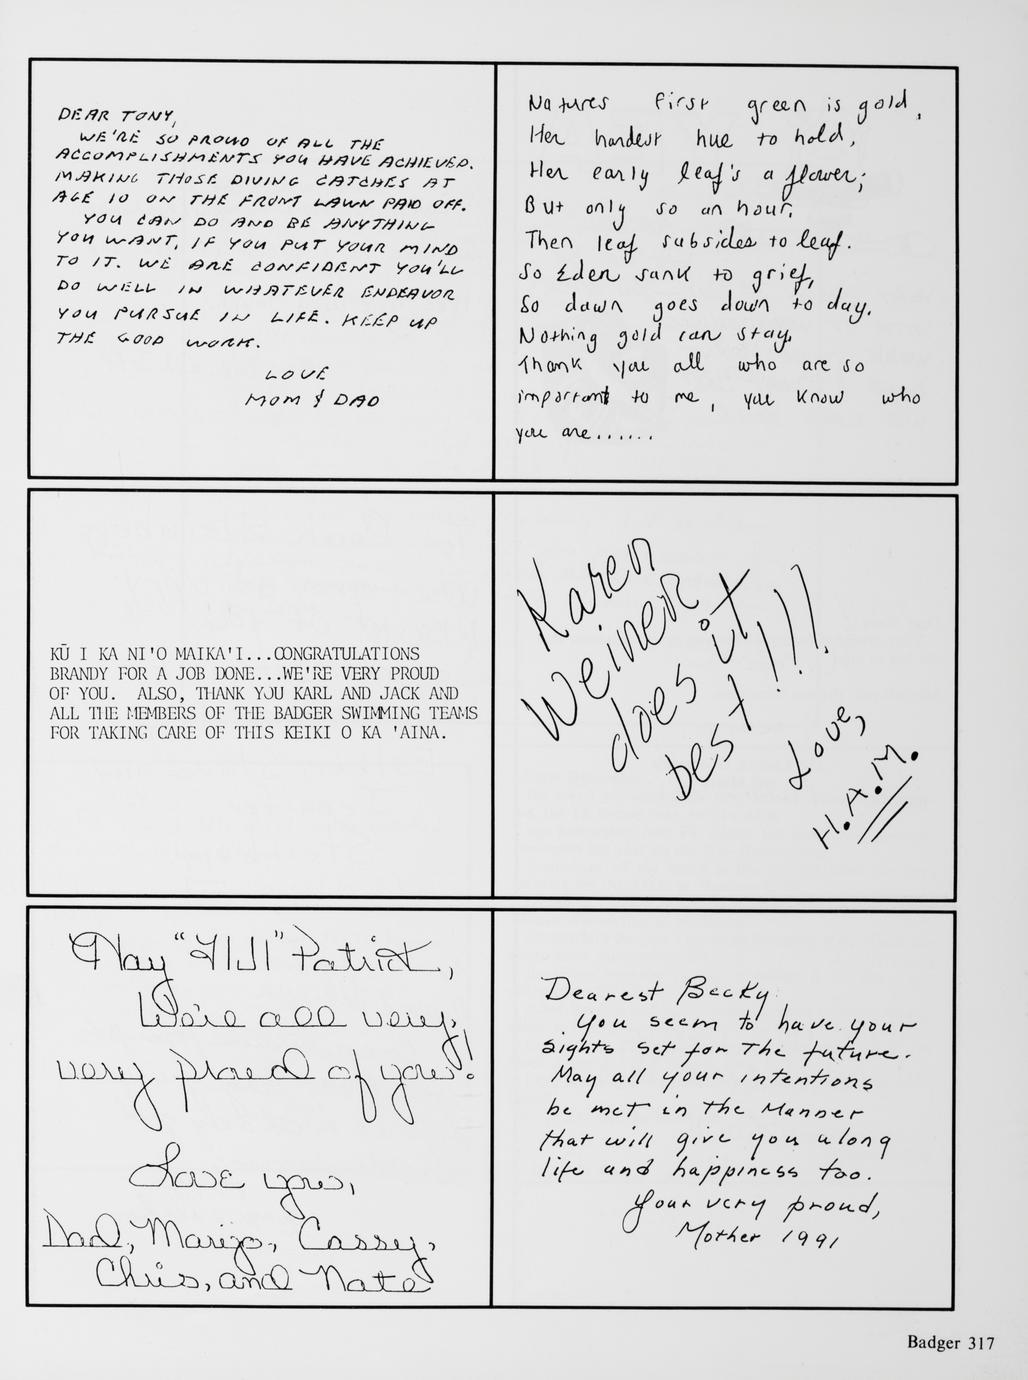 DEAR TONY,
WE'RE SO PROUD OF ALL THE
ACCOMPLISHMENTS YOU HAVE ACHIEVED.
MAKING THOSE DIVING CATCHES AT
AGE 10 ON THE FRONT LAWN PAID OFF.
YOU CAN DO AND BE ANYTHING
YOU WANT, IF YOU PUT YOUR MIND
TO IT. WE ARE CONFIDENT YOU'LL
DO WELL IN WHATEVER ENDEAVOR
YOU PURSUE IN LIFE. KEEP UP
THE GOOD WORK.
LOVE
MOM & DAD
Natures first green is gold,
Her hardest hue to hold,
Her early leaf's a flower;
But only so an hour.
Then leaf subsides to leaf.
So Eden sank to grief,
So dawn goes down to day.
Nothing gold can stay.
Thank you all who are so
important to me, you know who
you are......
KŪ I KA NI'O MAIKA'I...CONGRATULATIONS
BRANDY FOR A JOB DONE...WE'RE VERY PROUD
OF YOU. ALSO, THANK YOU KARL AND JACK AND
ALL THE MEMBERS OF THE BADGER SWIMMING TEAMS
FOR TAKING CARE OF THIS KEIKI O KA 'AINA.
Karen
Weiner
does it
best!!!
Love,
H.A.M.
Hay "FIJI" Patrick,
We're all very,
very proud of you!
Love you,
Dad, Marijo, Cassey,
Chris, and Nate
Dearest Becky
You seem to have your
sights set for the future.
May all your intentions
be met in the manner
that will give you a long
life and happiness too.
Your very proud,
Mother 1991
Badger 317